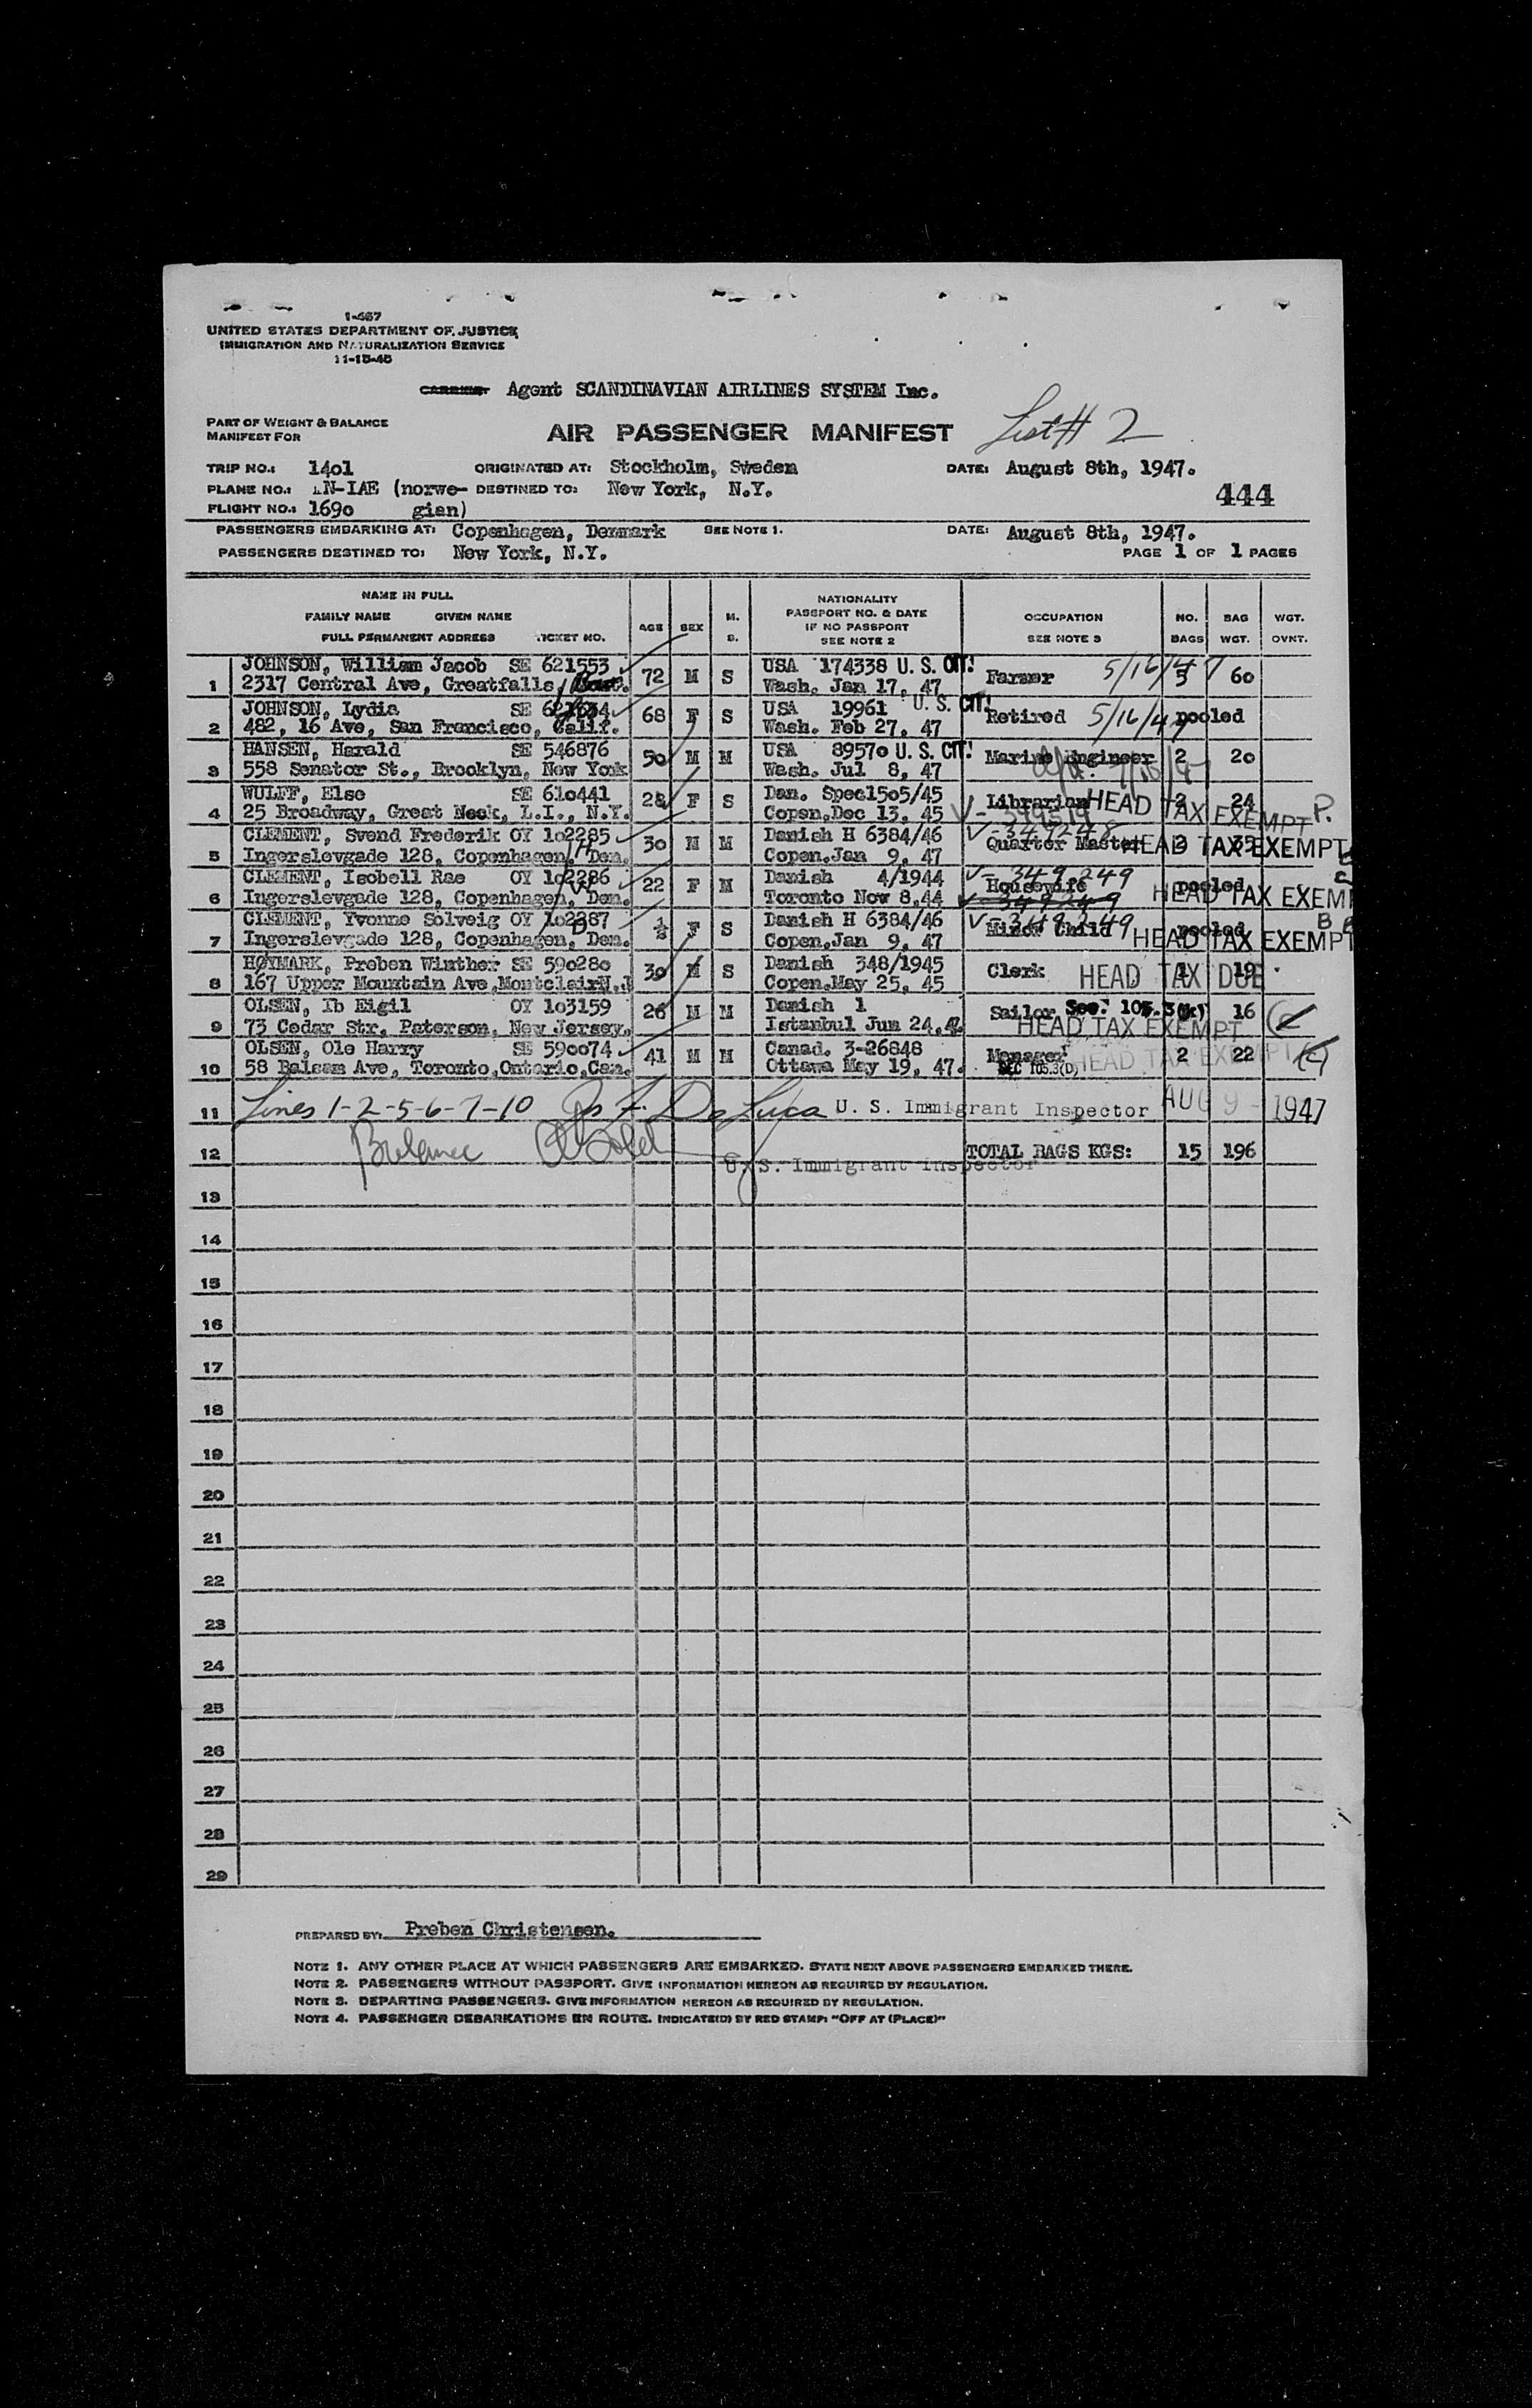 1-467
UNITED STATES DEPARTMENT OF JUSTICE
IMMIGRATION AND NATURALIZATION SERVICE
11-15-45
CARRIER Agent SCANDINAVIAN AIRLINES SYSTEM Inc.
PART OF WEIGHT & BALANCE
MANIFEST FOR
AIR PASSENGER MANIFEST List # 2
TRIP NO.: 14o1 ORIGINATED AT: Stockholm, Sweden DATE: August 8th, 1947.
PLANE NO.: LN-IAE (norwe- DESTINED TO: New York, N.Y. 444
FLIGHT NO.: 169o gian)
PASSENGERS EMBARKING AT: Copenhagen, Denmark SEE NOTE 1. DATE: August 8th, 1947.
PASSENGERS DESTINED TO: New York, N.Y. PAGE 1 OF 1 PAGES
NAME IN FULL
FAMILY NAME GIVEN NAME
FULL PERMANENT ADDRESS TICKET NO. AGE SEX M. S. NATIONALITY PASSPORT NO. & DATE IF NO PASSPORT SEE NOTE 2 OCCUPATION SEE NOTE 3 NO. BAGS BAG WGT. WGT. OVNT.
JOHNSON, William Jacob SE 621553 72 M S USA 174338 U. S. CIT! Farmer 5/16/47 3 6o
1 2317 Central Ave, Greatfalls, Wash. Jan 17, 47
JOHNSON, Lydia SE 68 F S USA 19961 U. S. CIT! Retired 5/16/47 pooled
2 482, 16 Ave, San Francisco, Calif. Wash. Feb 27, 47
HANSEN, Harald SE 546876 5o M M USA 8957o U. S. CIT! Marine Engineer 2 2o
3 558 Senator St., Brooklyn, New York Wash. Jul 8, 47
WULFF, Else SE 61o441 28 F S Dan. Spec15o5/45 Librarian HEAD TAX EXEMPT P. 2 24
4 25 Broadway, Great Neck, L.I., N.Y. Copen.Dec 13, 45
CLEMENT, Svend Frederik OY 1o2285 3o M M Danish H 6384/46 V-349248 Quarter Master HEAD TAX EXEMPT
5 Ingerslevgade 128, Copenhagen, Den. Copen.Jan 9, 47
CLEMENT, Isobell Rae OY 1o2286 22 F M Danish 4/1944 V-349249 Housewife pooled
6 Ingerslevgade 128, Copenhagen, Den. Toronto Nov 8,44 V-349249 HEAD TAX EXEM
CLEMENT, Yvonne Solveig OY 1o2287 ½ F S Danish H 6384/46 V-349249 Minor Child pooled
7 Ingerslevgade 128, Copenhagen, Den. Copen.Jan 9, 47 HEAD TAX EXEMPT
HØYMARK, Preben Winther SE 59o28o 3o M S Danish 348/1945 Clerk HEAD TAX DUE 1 19
8 167 Upper Mountain Ave,Montclair,N.J Copen.May 25, 45
OLSEN, Ib Eigil OY 1o3159 26 M M Danish 1 Sailor Sec. 105.3 16
9 73 Cedar Str, Paterson, New Jersey. Istanbul Jun 24,47. HEAD TAX EXEMPT
OLSEN, Ole Harry SE 59oo74 41 M M Canad. 3-26848 Manager 2 22
10 58 Balsam Ave, Toronto,Ontario,Can. Ottawa May 19, 47. SEC 105.3(D) HEAD TAX EXEMPT
11 Lines 1-2-5-6-7-10 Jos F. DeLuca U. S. Immigrant Inspector AUG 9 - 1947
12 Balance U. S. Immigrant Inspector TOTAL BAGS KGS: 15 196
13
14
15
16
17
18
19
20
21
22
23
24
25
26
27
28
29
PREPARED BY: Preben Christensen.
NOTE 1. ANY OTHER PLACE AT WHICH PASSENGERS ARE EMBARKED. STATE NEXT ABOVE PASSENGERS EMBARKED THERE.
NOTE 2. PASSENGERS WITHOUT PASSPORT. GIVE INFORMATION HEREON AS REQUIRED BY REGULATION.
NOTE 3. DEPARTING PASSENGERS. GIVE INFORMATION HEREON AS REQUIRED BY REGULATION.
NOTE 4. PASSENGER DEBARKATIONS EN ROUTE. INDICATE(D) BY RED STAMP: "OFF AT (PLACE)"